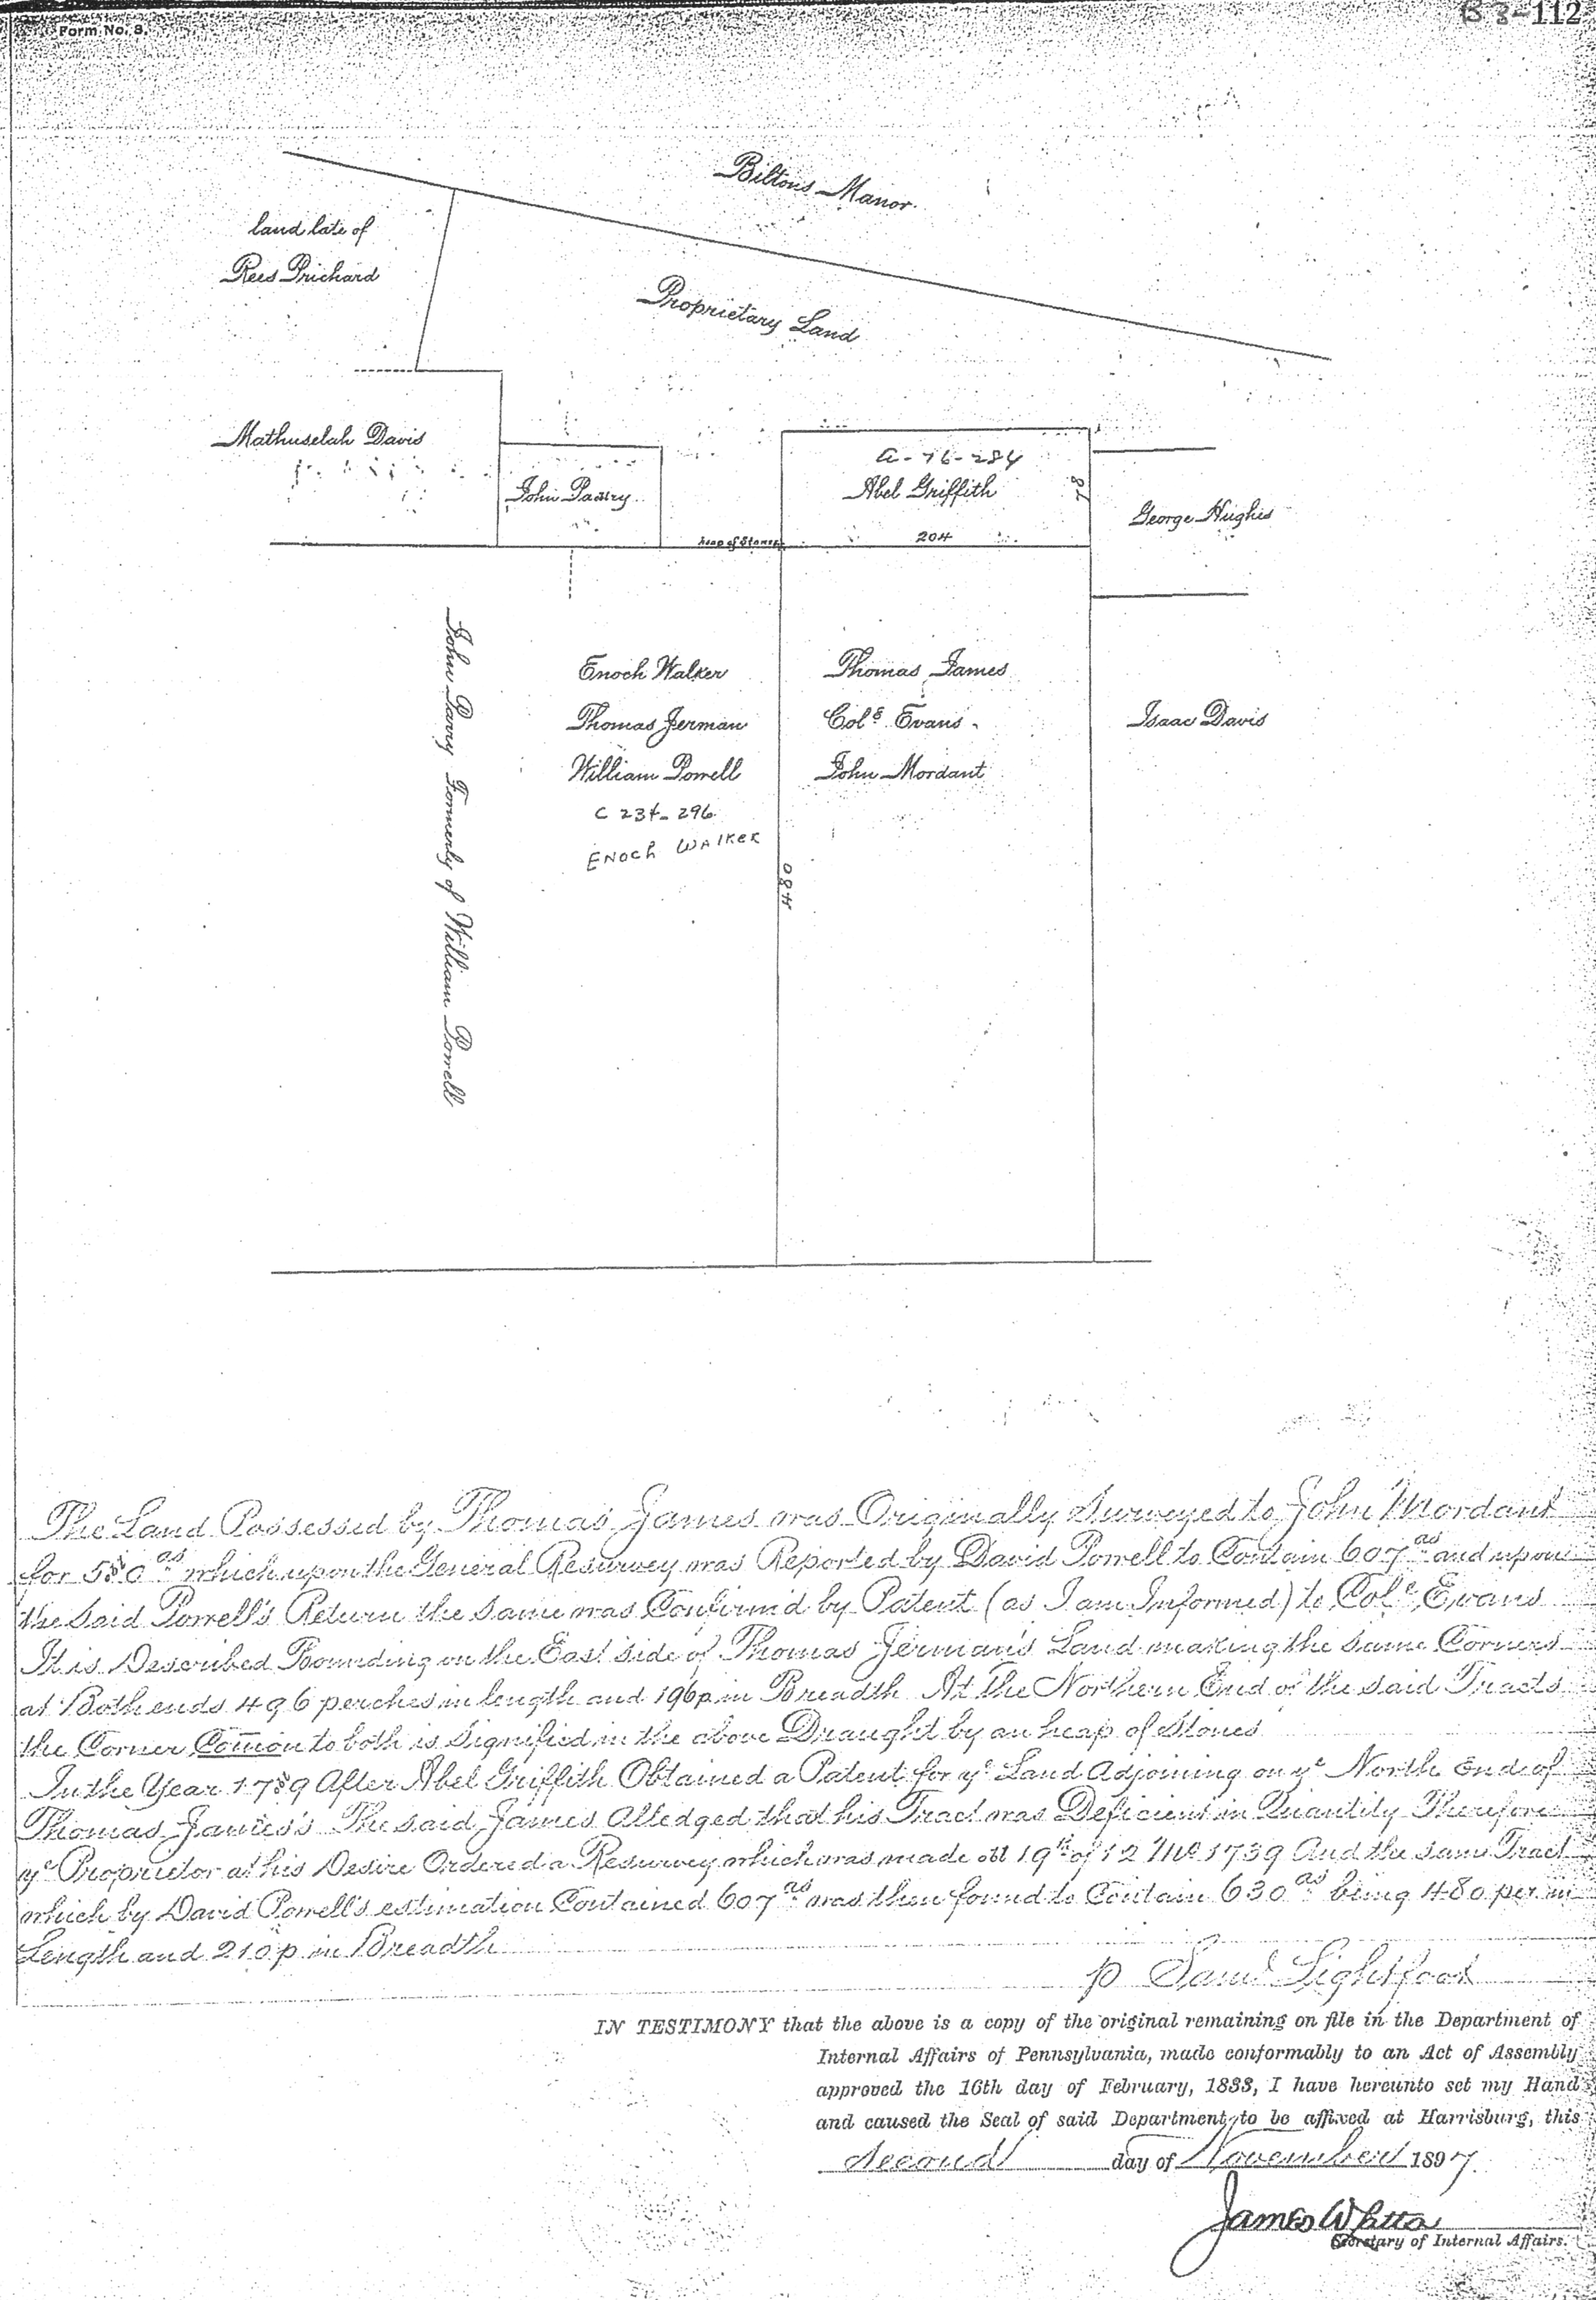 Form No. 8.
B 8-112
Biltons Manor.
land late of
Rees Prichard
Proprietary Land
Mathuselah Davis
John Parry
a-76-284
Abel Griffith
78
George Hughes
heap of Stones
204
Enoch Walker
Thomas Jerman
William Powell
C 234-296
ENOCH WALKER
Thomas James
Colº Evans
John Mordant
Isaac Davis
John Parry Formerly of William Powell
480
The Land Possessed by Thomas James was Originally Surveyed to John Mordant
for 580 as which upon the General Resurvey was Reported by David Powell to Contain 607 as and upon
the said Powell's Return the same was Confirm'd by Patent (as I am Informed) to Colº Evans
It is Described Bounding on the East side of Thomas Jerman's Land making the same Corners
at Both ends 496 perches in length and 196p in Breadth At the Northern End of the said Tracts
the Corner Com̄on to both is Signified in the above Draught by an heap of Stones
In the Year 1739 After Abel Griffith Obtained a Patent for yᵉ Land Adjoining on yᵉ North End of
Thomas James's The said James Alledged that his Tract was Deficient in Quantity Therefore
yᵉ Proprietor at his Desire Ordered a Resurvey which was made 19th of 12 Mo 1739 And the same Tract
which by David Powell's estimation Contained 607 as was then found to Contain 630 as being 480 per in
Length and 210 p in Breadth
p Samˡ Lightfoot
IN TESTIMONY that the above is a copy of the original remaining on file in the Department of
Internal Affairs of Pennsylvania, made conformably to an Act of Assembly
approved the 16th day of February, 1833, I have hereunto set my Hand
and caused the Seal of said Department to be affixed at Harrisburg, this
Second day of November 1897.
James W Latta
Secretary of Internal Affairs.